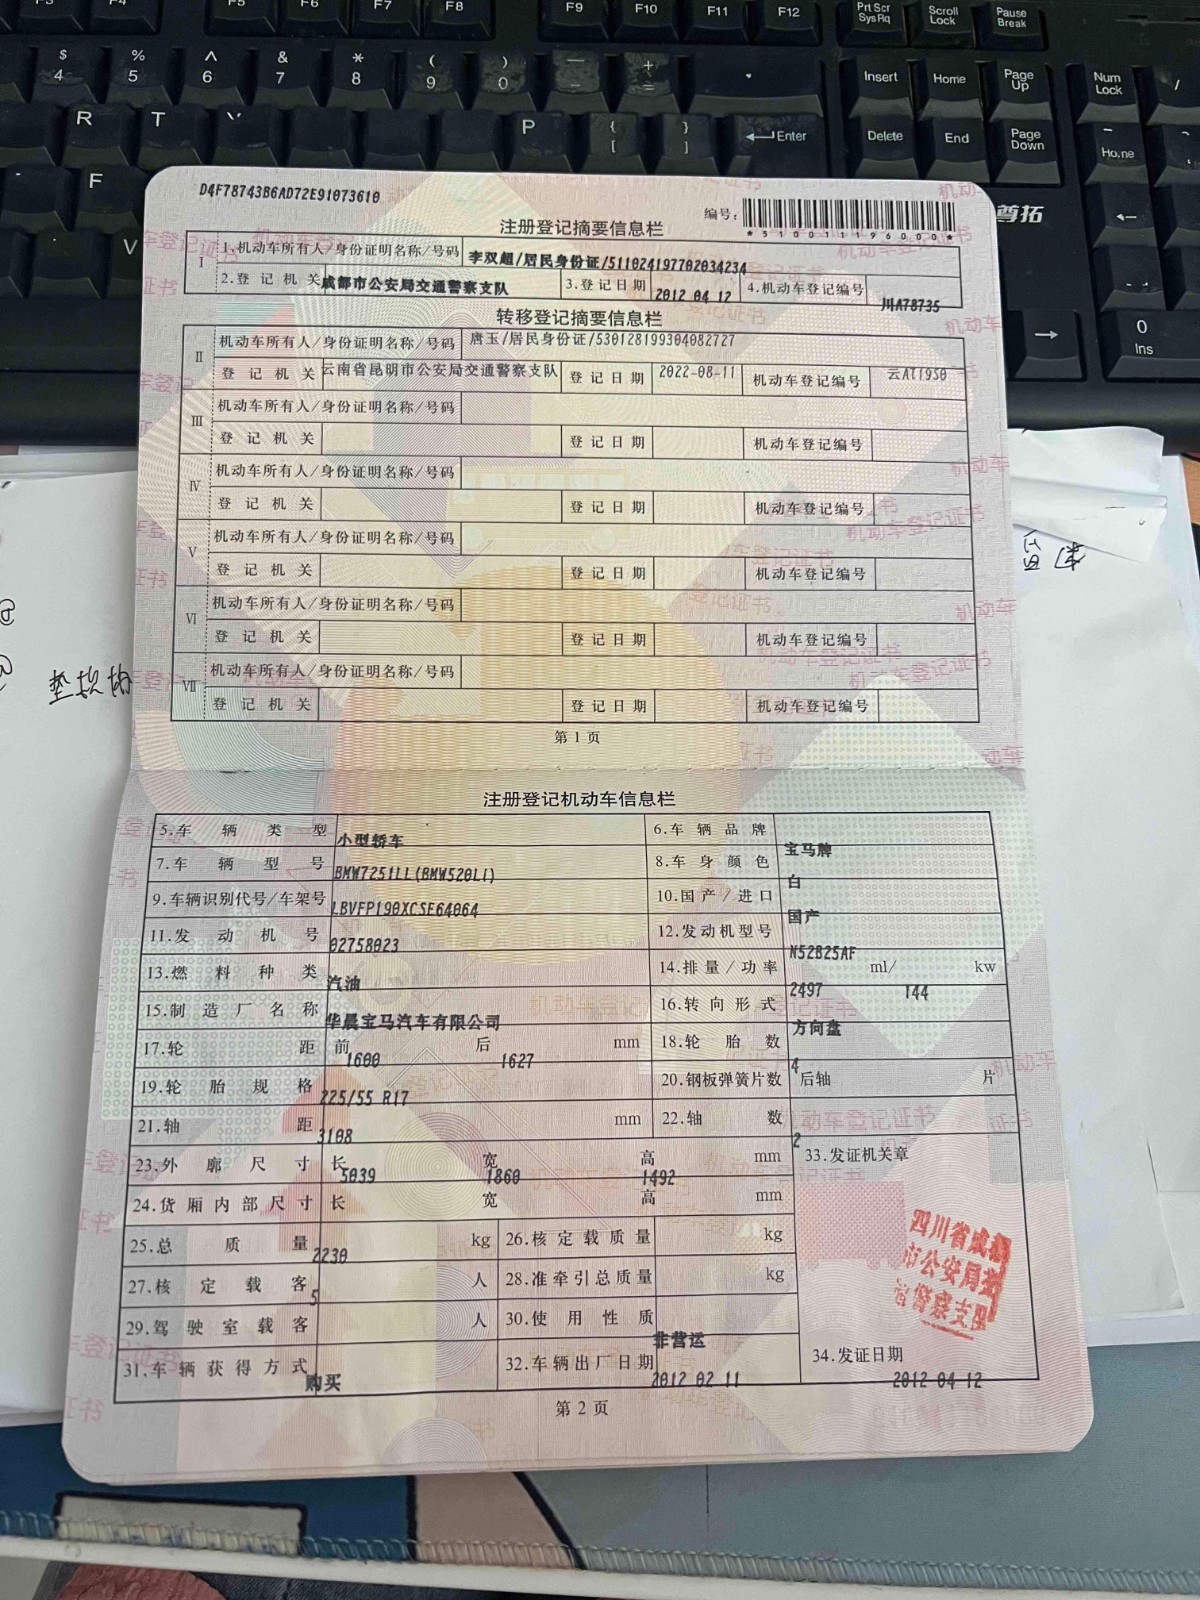 F5
F6
F7
F8
F9
F10
F11
F12
Prt Scr
SysRq
Scroll
Lock
Pause
Break
$
4
%
5
^
6
&
7
*
8
(
9
)
0
Insert
Home
Page
Up
Num
Lock
/
R
T
P
{
[
}
]
Enter
Delete
End
Page
Down
F
V
尊拓
0
Ins
D4F78743B6AD72E91073610
编号:
*510011196000*
注册登记摘要信息栏
I 1.机动车所有人/身份证明名称/号码 李双超/居民身份证/511024197702034234
2.登记机关 成都市公安局交通警察支队 3.登记日期 2012 04 12 4.机动车登记编号 川A78735
转移登记摘要信息栏
II 机动车所有人/身份证明名称/号码 唐玉/居民身份证/530128199304082727
登记机关 云南省昆明市公安局交通警察支队 登记日期 2022-08-11 机动车登记编号 云AT19S0
III 机动车所有人/身份证明名称/号码
登记机关 登记日期 机动车登记编号
IV 机动车所有人/身份证明名称/号码
登记机关 登记日期 机动车登记编号
V 机动车所有人/身份证明名称/号码
登记机关 登记日期 机动车登记编号
VI 机动车所有人/身份证明名称/号码
登记机关 登记日期 机动车登记编号
VII 机动车所有人/身份证明名称/号码
登记机关 登记日期 机动车登记编号
第1页
注册登记机动车信息栏
5.车辆类型 小型轿车 6.车辆品牌 宝马牌
7.车辆型号 BMW7251LL(BMW520LI) 8.车身颜色 白
9.车辆识别代号/车架号 LBVFP190XCSE64064 10.国产/进口 国产
11.发动机号 02758023 12.发动机型号 N52B25AF
13.燃料种类 汽油 14.排量/功率 2497 ml/ 144 kw
15.制造厂名称 华晨宝马汽车有限公司 16.转向形式 方向盘
17.轮距 前 1600 后 1627 mm 18.轮胎数 4
19.轮胎规格 225/55 R17 20.钢板弹簧片数 后轴 片
21.轴距 3108 mm 22.轴数 2
23.外廓尺寸 长 5039 宽 1860 高 1492 mm 33.发证机关章
24.货厢内部尺寸 长 宽 高 mm
25.总质量 2230 kg 26.核定载质量 kg
27.核定载客 5 人 28.准牵引总质量 kg
29.驾驶室载客 人 30.使用性质 非营运
31.车辆获得方式 购买 32.车辆出厂日期 2012 02 11 34.发证日期 2012 04 12
四川省成都
市公安局交
通警察支队
第2页